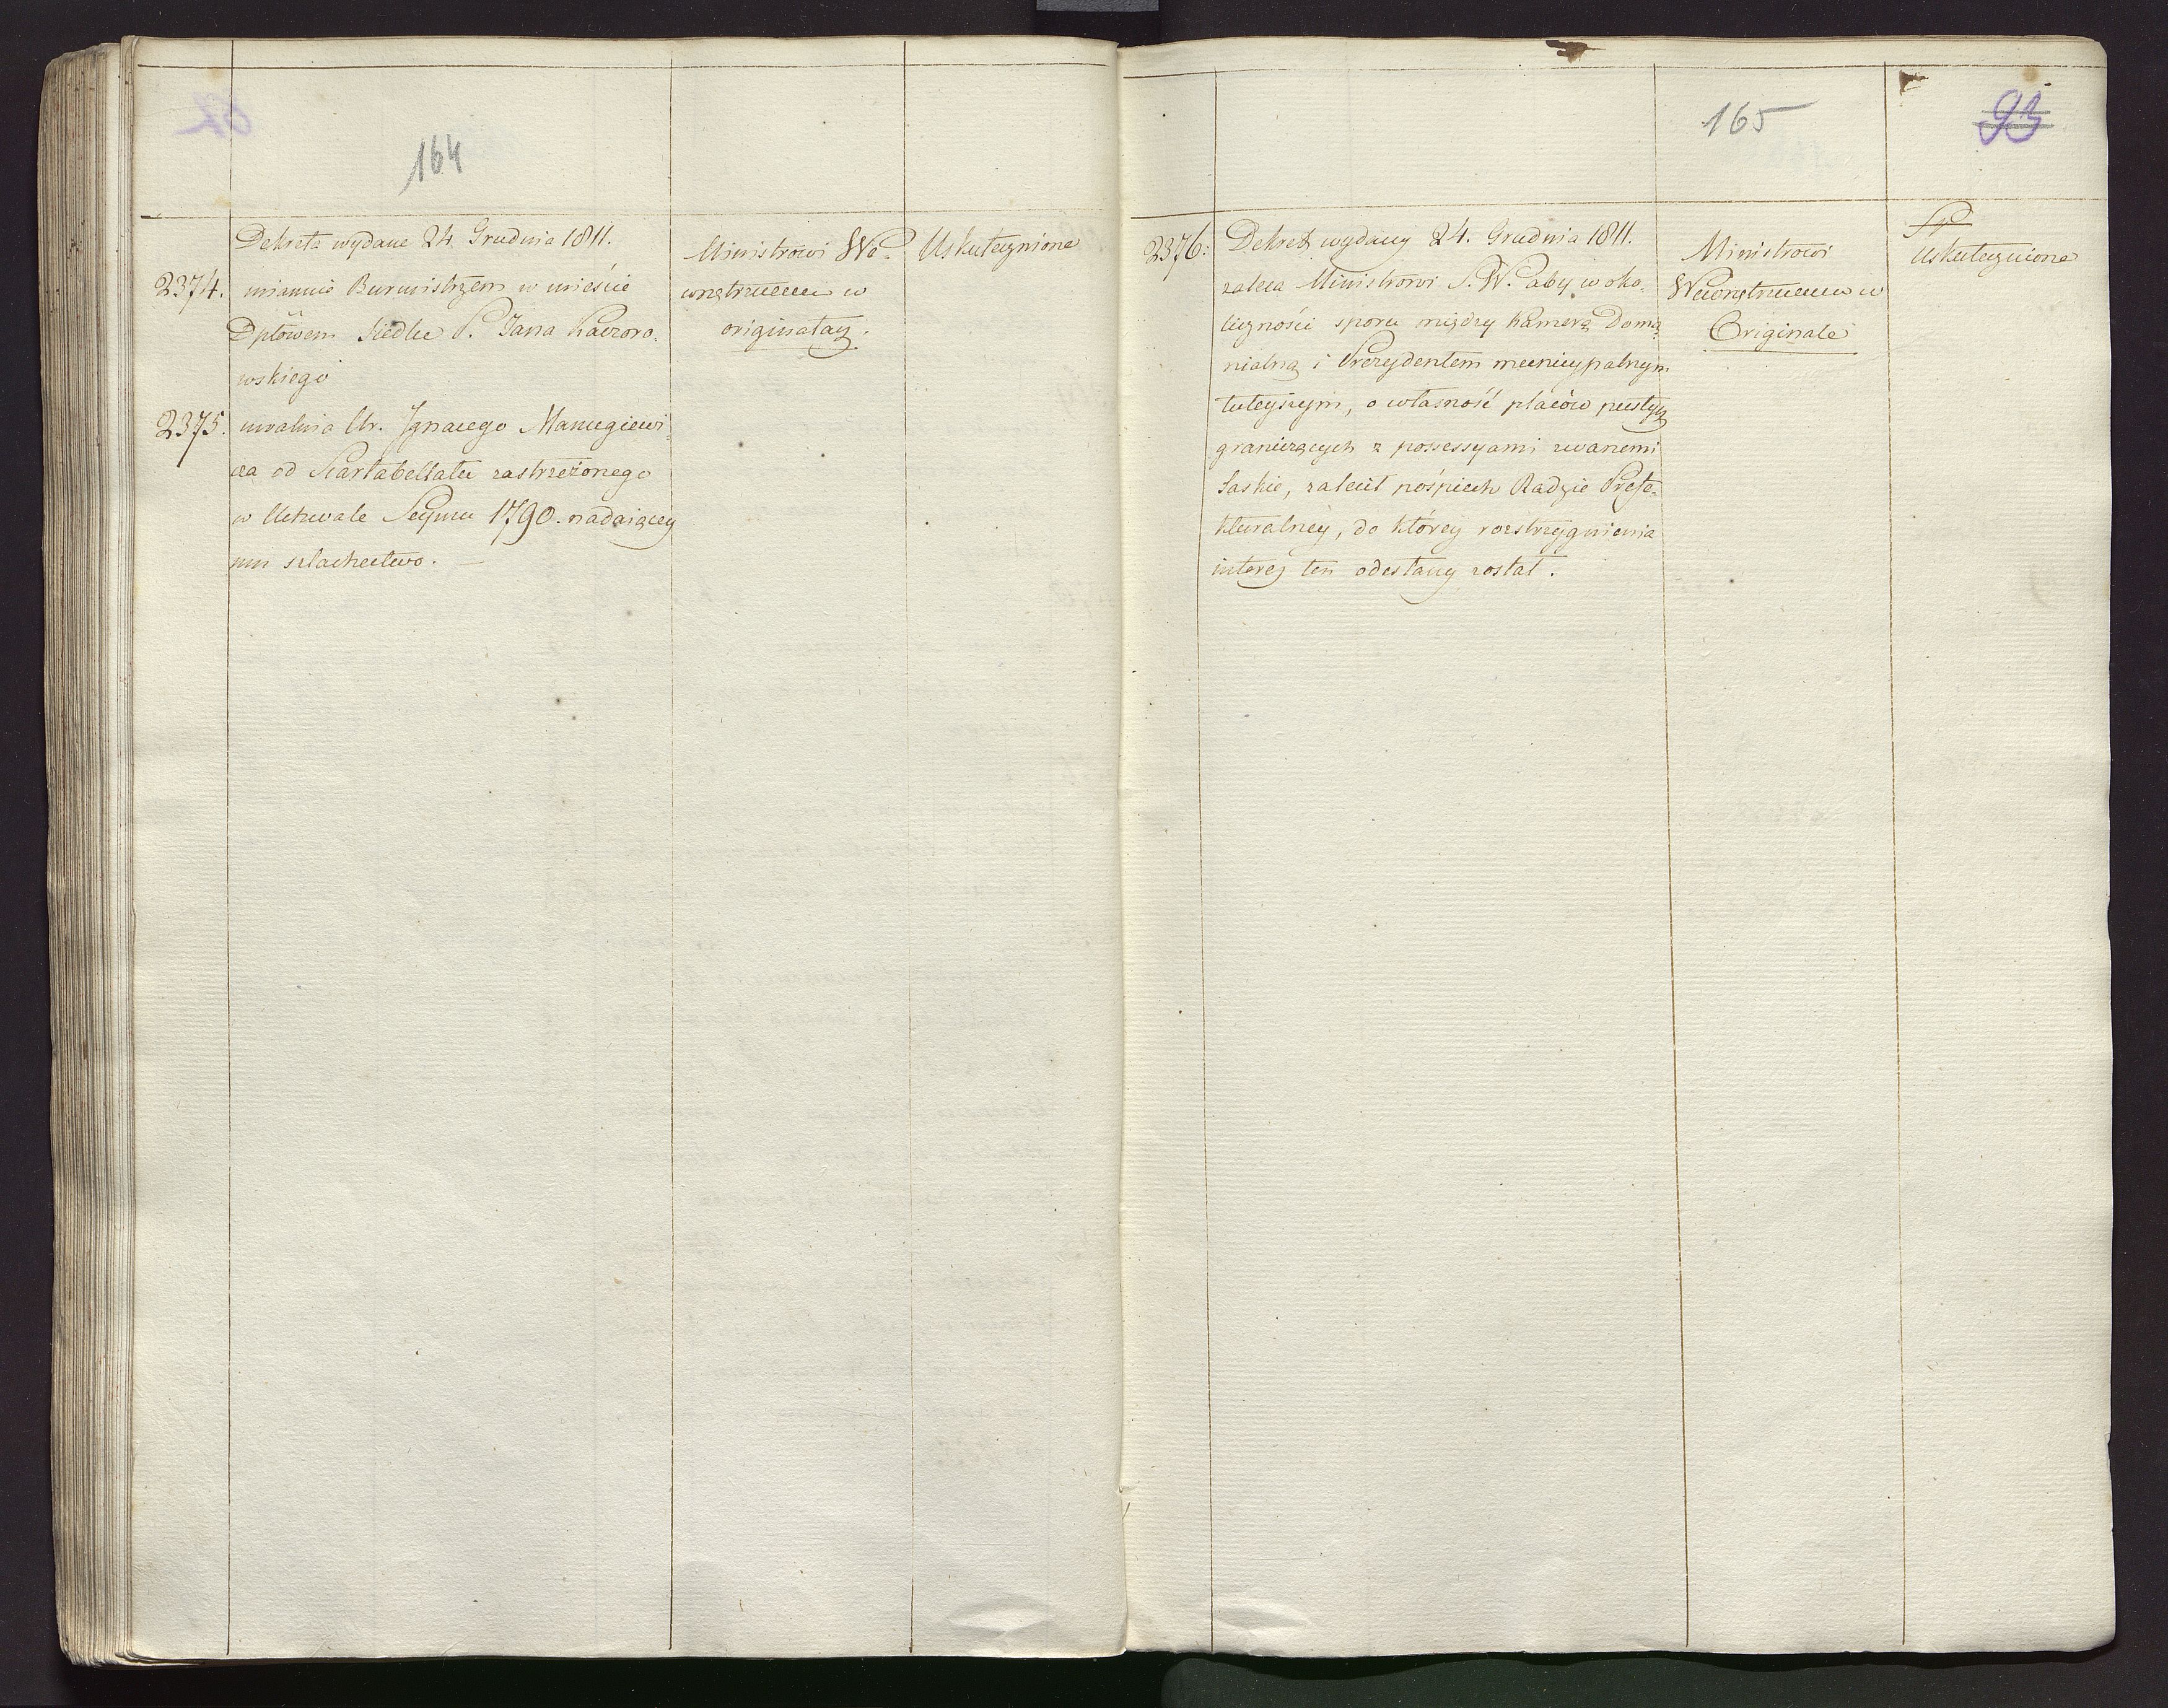 164
Dekreta wydane 24. Grudnia 1811.
2374. mianuie Burmistrzem w mieście
Dptowem Siedlce P. Jana Kaczoro-
wskiego
2375. uwalnia Ur. Ignacego Manugiewi-
cza od Skartabellatu zastrzeżonego
w Uchwale Seymu 1790. nadaiącey
mu szlachectwo. —
Ministrowi We-
wnętrznemu w
originałach.
Uskutecznione
165
93
2376. Dekret wydany 24. Grudnia 1811.
zaleca Ministrowi S. W. aby w oko-
liczności sporu między Kamerą Doma-
nialną i Prezydentem municypalnym
tuteyszym, o własność placów pustych
graniczących z possessyami zwanemi
Saskie, zalecił pośpiech Radzie Prefe-
kturalney, do którey rozstrzygnienia
interes ten odesłany został.
Ministrowi
Wewnętrznemu w
Originale
Uskutecznione